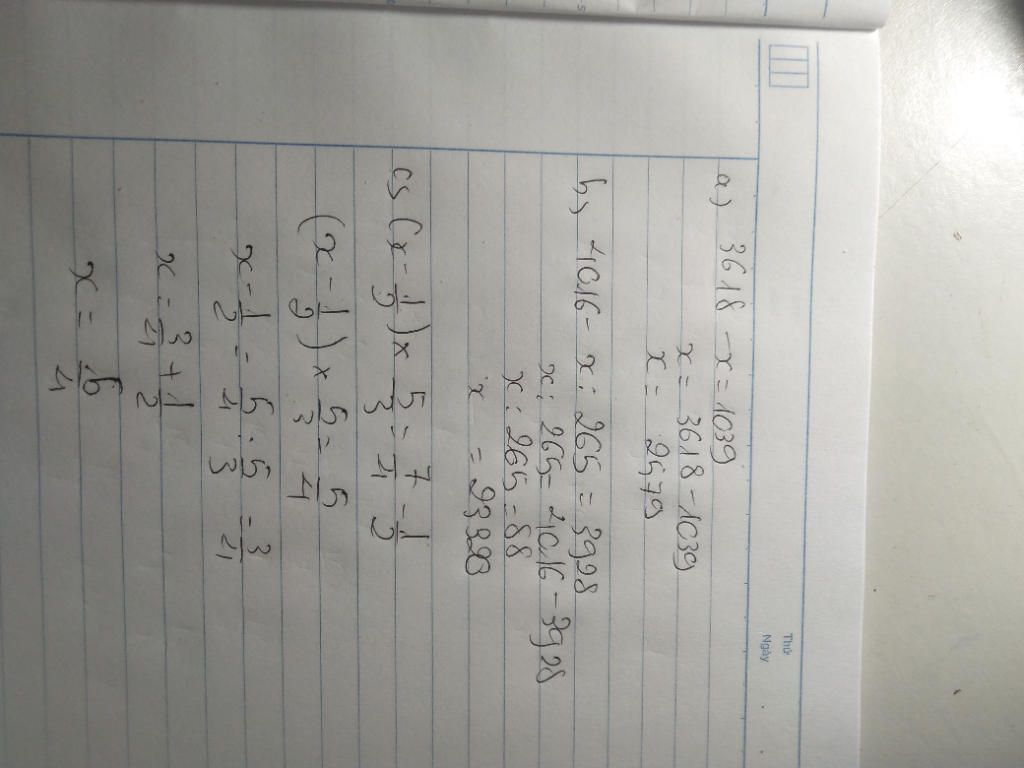 Thứ
Ngày
a) 3618 - x = 1039
x = 3618 - 1039
x = 2579
b) 4016 - x : 265 = 3928
x : 265 = 4016 - 3928
x : 265 = 88
x = 23320
c) (x - 1/2) × 5/3 = 7/4 - 1/2
(x - 1/2) × 5/3 = 5/4
x - 1/2 = 5/4 : 5/3 = 3/4
x = 3/4 + 1/2
x = 5/4